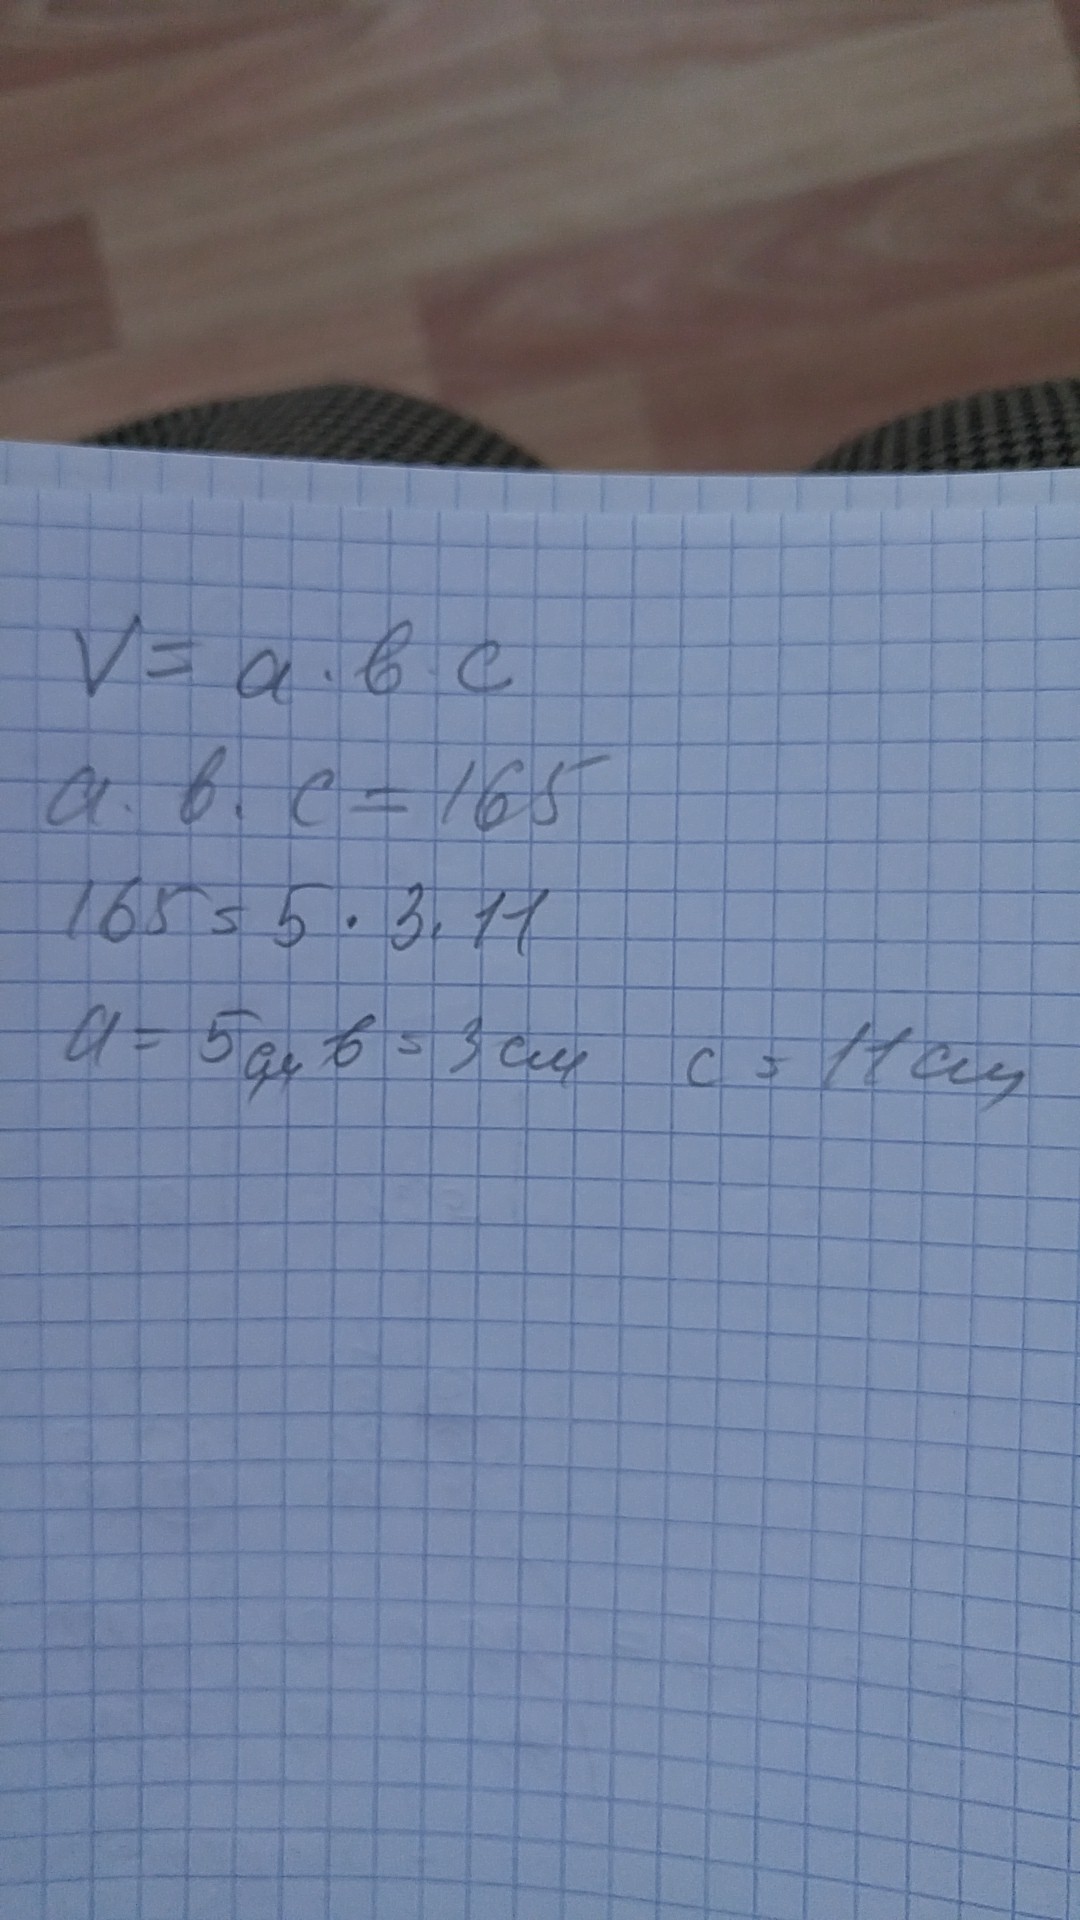 V = a · в · c
a · в · c = 165
165 = 5 · 3 · 11
a = 5 см в = 3 см c = 11 см